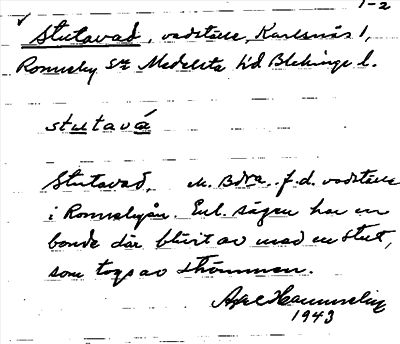 1-2
Stutavad, vadställe, Karlsnäs 1,
Ronneby sn Medelsta hd Blekinge l.
stutavá
Stutavad, M. Bdra. f.d. vadställe
i Ronnebyån. Enl. sägen har en
bonde där blivit av med en stut,
som togs av strömmen.
Axel Hammelin
1943